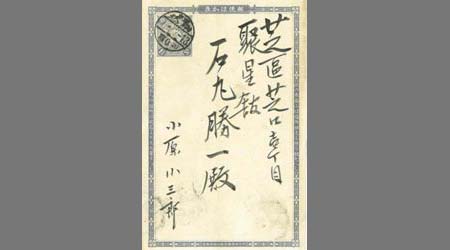 郵便はがき
芝區芝口壱丁目
聚星館
石丸勝一殿
小原小三郎